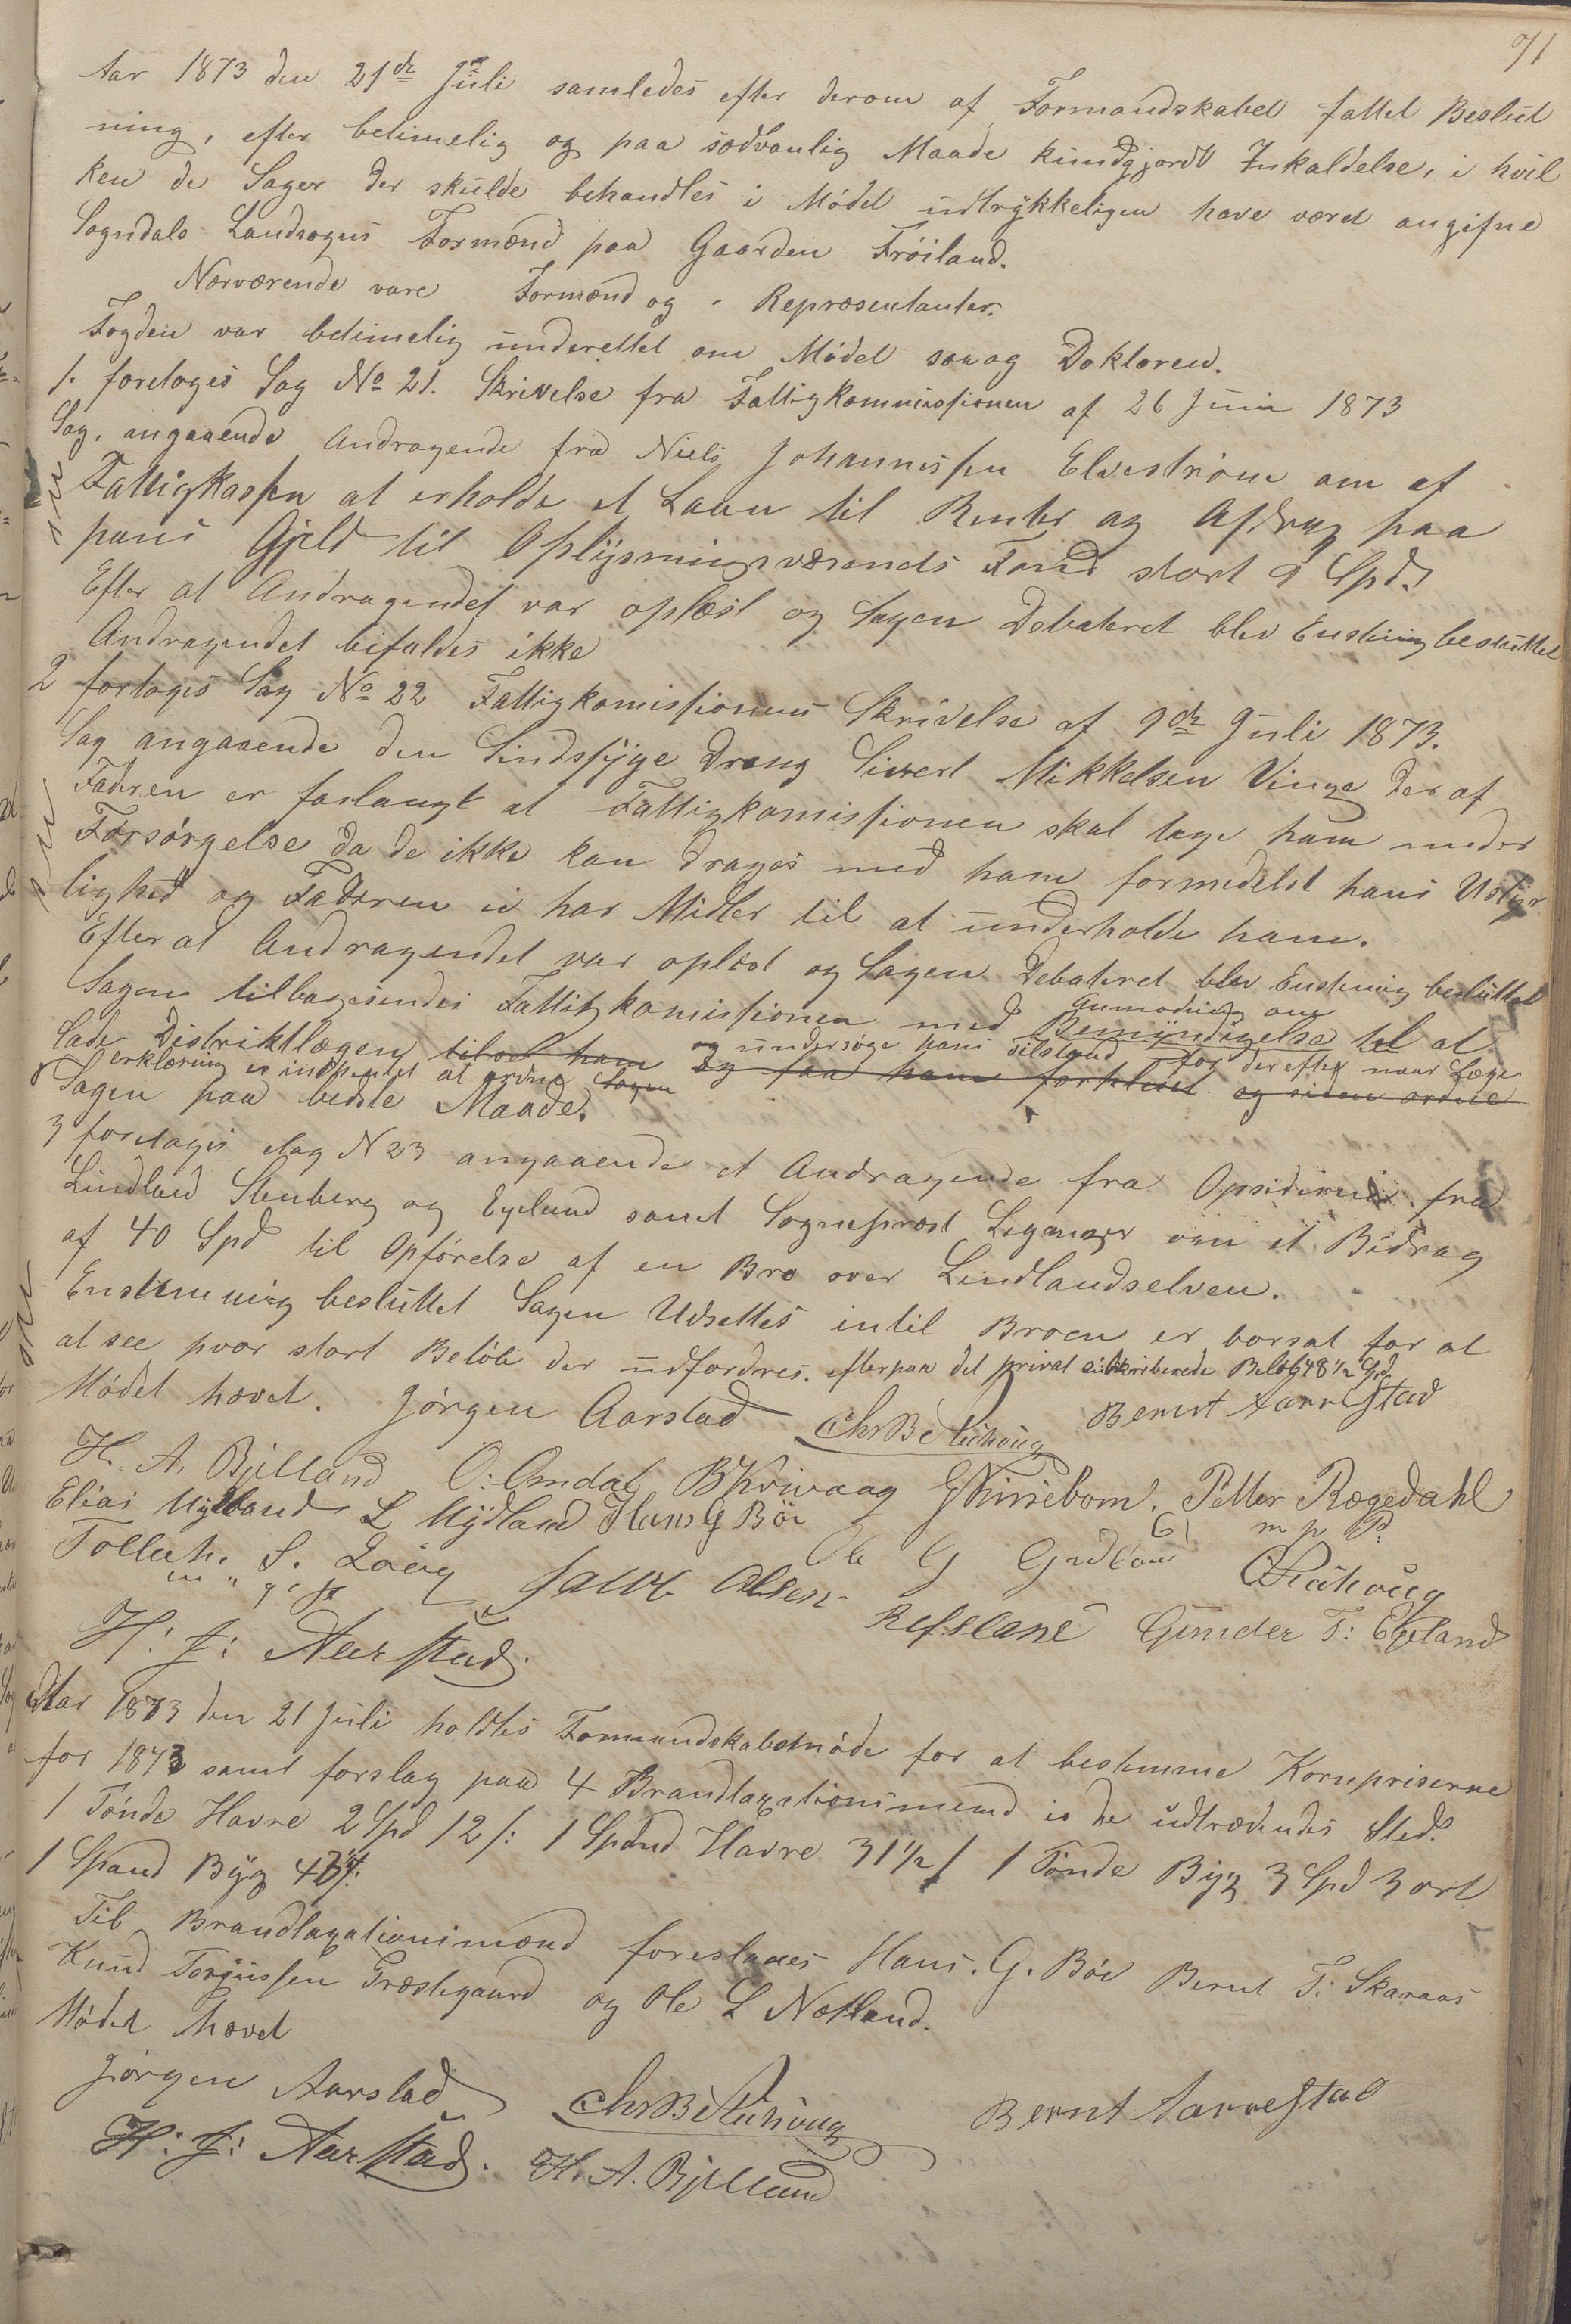 71
Aar 1873 den 21de Juli samledes efter derom af Formandskabet fattet Beslut
ning, efter betimelig og paa sædvanlig Maade kundgjordt Inkaldelse, i hvil
ken de Sager der skulde behandles i Mødet udtrykkeligen have været angifne
Sogndals Landsogns Formænd paa Gaarden Frøiland.
Nærværende vare Formænd og Repræsentanter.
Fogden var betimelig underettet om Mødet saa og Doktoren.
1. foretoges Sag No 21. Skrivelse fra Fattigkommissionen af 26 Juni 1873
Sag, angaaende Andragende fra Niels Johannessen Elvestrøm om af
Fattigkassen at erholde et Laan til Renter og Afdrag paa
hans Gjeld til Oplysningsværends Fond stort 9 Spd.
Efter at Andragendet var oplæst og Sagen Debateret blev Enstemig besluttet
Andragendet bifaldes ikke
2 fortoges Sag No 22 Fattigkomissionens Skrivelse af 9de Juli 1873.
Sag angaaende den Sindssyge Dreng Sivert Mikkelsen Vinge der af
Faderen er forlangt at Fattigkomissionen skal tage ham under
Forsørgelse da de ikke kan drages med ham formedelst hans Ustyr
lighed og Faderen ei har Midler til at underholde ham.
Efter at Andragendet var oplæst og Sagen Debateret blev Enstemig besluttet
Sagen tilbagesendes Fattigkomissionen med Bemyndigelse til at
Anmodning om
lade Distriktlægen tilse ham og faa ham forpleiet og siden ordne
og undersøge hans Tilstand for derefter naar Læge
erklæring er indhentet at ordne Sagen
Sagen paa bedste Maade.
3 foretoges Sag N 23 angaaende et Andragende fra Opsiderne fra
Lindland Stenberg og Egeland samt Sogneprest om et Bidrag
af 40 Spd til Opførelse af en Bro over Lindlandselven.
Enstemmig besluttet Sagen Udsettes intil Broen er borsat for at
at see hvor stort Beløb der udfordres. efterpaa det privat Beløb 48 1/2 Spd
Mødet hævet. Jørgen Aarstad Chr B Bernt Aarrestad
H. A. Bjelland O. Omdal B Kvivaag G Petter Rægedahl
Elias Mydland L Mydland Hans G Bøe m p P.
Tollach. S. Ole G
Jacob Olsen Refsland Gunder T: Egeland
H: J: Aarstad.
Aar 1873 den 21 Juli holdtes Formandskabsmøde for at bestemme Kornpriserne
for 1873 samt forslag paa 4 Brandtaxationsmænd i de udtrædendes Sted.
1 Tønde Havre 2 Spd 12 /: 1 Spand Havre 31 1/2 / 1 Tønde Byg 3 Spd 3 ort
1 Spand Byg
Til Brandtaxationsmænd foreslaaes Hans. G. Bøe Bernt T: Skaraas
Knud Torgussen Præstegaard og Ole L Nætland.
Mødet hævet
Jørgen Aarstad Chr B Bernt Aarrestad
H: J: Aarstad. H. A. Bjelland